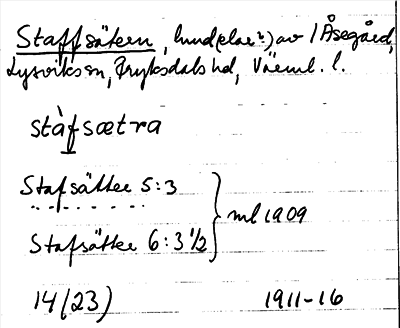 Staffsätern, lund(plac?) av 1 Åsegård,
Lysviks sn, Fryksdals hd, Värml. l.
stàfsætra
Stafsätter 5:3
Stafsätter 6:3 1/2
} ml 1909
14(23) 1911-16